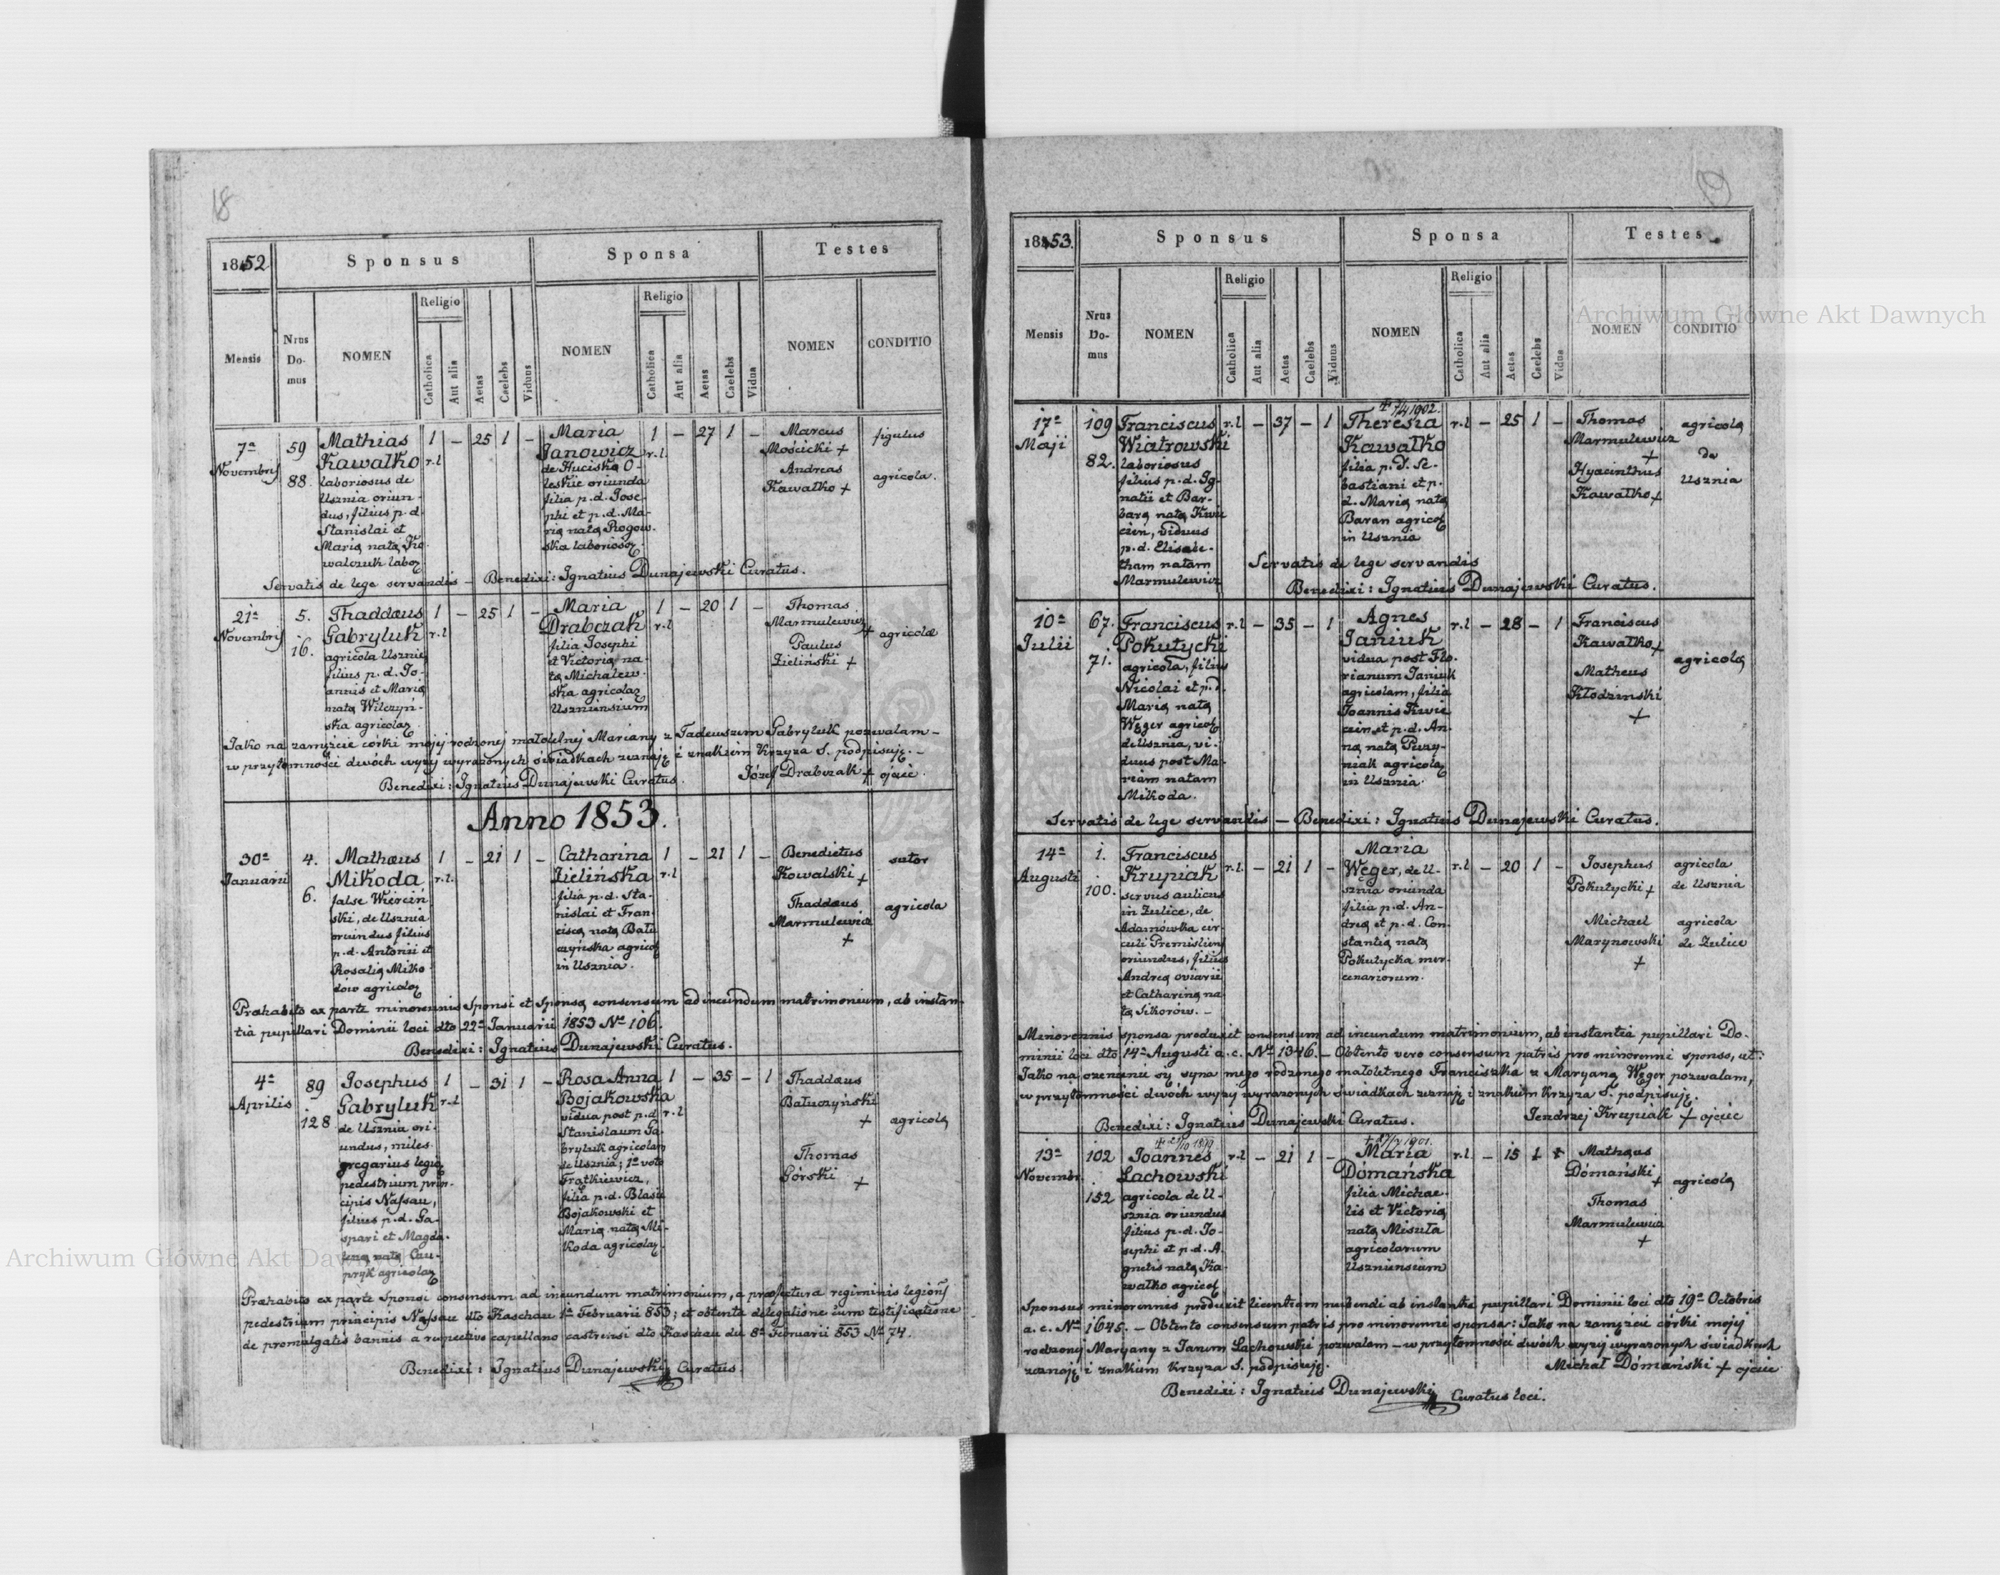 18
1852
Sponsus
Sponsa
Testes
Mensis
Nrus
Do-
mus
NOMEN
Religio
Catholica
Aut alia
Aetas
Caelebs
Viduus
NOMEN
Religio
Catholica
Aut alia
Aetas
Caelebs
Vidua
NOMEN
CONDITIO
7ª
Novembris
59
88.
Mathias
Kawałko
laboriosus de
Usznia oriun-
dus, filius p.d.
Stanislai et
Maria nata Ko
walczuk labo
1
r.l
–
25
1
–
Maria
Janowicz
de Huciska O-
leskie oriunda
filia p.d. Jose-
phi et p.d. Ma-
ria nata Rogow-
ska laborioso
1
r.l.
–
27
1
–
Marcus
Mościcki +
Andreas
Kawałko +
figulus
agricola.
Servatis de lege servandis – Benedixi: Ignatius Dunajewski Curatus.
21ª
Novembris
5.
16.
Thaddæus
Gabryluk
agricola Uszniæ
filius p.d. Jo-
annis et Maria
nata Wilczyń-
ska agricolaz
1
r.l
–
25
1
–
Maria
Drabczak
filia Josephi
et Victoria na-
ta Michalew-
ska agricolaz
Uszniensium
1
r.l
–
20
1
–
Thomas
Marmulewicz
+
Paulus
Zieliński +
agricolæ
Jako na zamęzcie córki mojej rodzonej małoletnej Maryany z Tadeuszem Gabryluk pozwalam –
w przytomności dwóch wyzy wyrazonych świadkach zeznaję i znakiem Krzyza S. podpisuję. –
Józef Drabczak + ojciec.
Benedixi: Ignatius Dunajewski Curatus.
Anno 1853.
30ª
Januarii
4.
6.
Mathæus
Mikoda
false Wierciń
ski, de Usznia
oriundus filius
p.d. Antonii et
Rosalia Miko
dow agricolaz
1
r.l.
–
21
1
–
Catharina
Zielinska
filia p.d. Sta-
nislai et Fran-
cisca nata Batu
czyńska agricol
in Usznia.
1
r.l
–
21
1
–
Benedictus
Kowalski +
Thaddæus
Marmulewicz
+
sutor
agricola
Præhabito ex parte minorennis Sponsi et Sponsa consensum ad ineundum matrimonium, ab instan-
tia pupillari Dominii loci dto 22ª Januarii 1853 Nº 106.
Benedixi: Ignatius Dunajewski Curatus.
4ª
Aprilis
89
128
Josephus
Gabryluk
de Usznia ori-
undus, miles
gregarius legio
pedestrium prin-
cipis Nassau,
filius p.d. Ga-
spari et Magda-
lena nata Cau-
pryk agricolaz
1
r.l
–
31
1
–
Rosa Anna
Bojakowska
vidua post p.d.
Stanislaum Ga-
bryluk agricolam
de Usznia; 1º voto
Fratkiewicz,
filia p.d. Blasii
Bojakowski et
Maria nata Mi-
koda agricolaz.
1
r.l
–
35
–
1
Thaddæus
Batuczyński
+
Thomas
Górski +
agricola
Præhabito ex parte Sponsi consensum ad ineundum matrimonium, a præfectura regiminis legionis
pedestrium principis Nassau dto Kaschau 1ª Februarii 853; et obtenta delegatione cum testificatione
de promulgatis bannis a respective capellano castrensi dto Kaschau die 8ª Februarii 853 Nº 74.
Benedixi: Ignatius Dunajewski Curatus.
1853.
Sponsus
Sponsa
Testes
Mensis
Nrus
Do-
mus
NOMEN
Religio
Catholica
Aut alia
Aetas
Caelebs
Viduus
NOMEN
Religio
Catholica
Aut alia
Aetas
Caelebs
Vidua
NOMEN
CONDITIO
17ª
Maji
109
82.
Franciscus
Wiatrowski
laboriosus
filius p.d. Ig-
natii et Bar-
bara nata Kwie
cien, viduus
p.d. Elisabe-
tham natam
Marmulewicz
r.l
–
37
–
1
+ 7/4 1902.
Theresia
Kawałko
filia p.d. Se-
bastiani et p.
d. Maria nata
Baran agricol
in Usznia
r.l
–
25
1
–
Thomas
Marmulewicz
+
Hyacinthus
Kawałko +
agricola
de
Usznia
Servatis de lege servandis
Benedixi: Ignatius Dunajewski Curatus.
10ª
Julii
67.
71.
Franciscus
Pokutycki
agricola, filius
Nicolai et p.d.
Maria nata
Węger agricol
de Usznia, vi-
duus post Ma-
riam natam
Mikoda.
r.l
–
35
–
1
Agnes
Janiuk
vidua post Flo-
rianum Janiuk
agricolam, filia
Joannis Kwie
cien et p.d. An-
na nata Puzy-
niak agricola
in Usznia.
r.l
–
28
–
1
Franciscus
Kawałko +
Matheus
Kłodzinski
+
agricola
Servatis de lege servandis – Benedixi: Ignatius Dunajewski Curatus.
14ª
Augusti
1.
100.
Franciscus
Krupiak
servus aulicus
in Zulice, de
Adamówka cir-
culi Premislien
oriundus, filius
Andrea oviarii
et Catharina na-
ta Sikorów. –
r.l.
–
21
1
–
Maria
Węger, de U-
sznia oriunda
filia p.d. An-
drea et p.d. Con-
stantia nata
Pokutycka mer-
cenariorum.
r.l
–
20
1
–
Josephus
Pokutycki +
Michael
Marynowski
+
agricola
de Usznia
agricola
de Zulice
Minorennis sponsa produxit consensum ad ineundum matrimonium, ab instantia pupillari Do-
minii loci dto 14ª Augusti a.c. Nº 1346. – Obtento vero consensum patris pro minorenni sponso, ut:
Jako na ozenienie się syna mego rodzonego małoletnego Franciszka z Maryaną Węger pozwalam,
w przytomności dwóch wyzy wyrazonych świadkach zeznaję i znakiem Krzyza S. podpisuję.
Jendrzej Krupiak + ojciec
Benedixi: Ignatius Dunajewski Curatus.
13ª
Novembr.
102
152
Joannes
Lachowski
agricola de U-
sznia oriundus
filius p.d. Jo-
sephi et p.d. A-
gnetis nata Ka-
wałko agricol
r.l
–
21
1
–
+ 27/2 1901.
Maria
Domańska
filia Michae-
lis et Victoria
nata Misuła
agricolarum
Uszniensium
r.l
–
15
1
Mathæus
Domański
+
Thomas
Marmulewicz
+
agricola
Sponsus minorennis produxit licentiam nubendi ab instantia pupillari Dominii loci dto 19ª Octobris
a.c. Nº 1645. – Obtento consensum patris pro minorenni sponsa: Jako na zamęzcie córki mojej
rodzonej Maryany z Janem Lachowski pozwalam – w przytomności dwóch wyzej wyrazonych świadkach
zeznaję i znakiem Krzyza S. podpisuję.
Michał Domański + ojciec
Benedixi: Ignatius Dunajewski Curatus loci.
Archiwum Główne Akt Dawnych
Archiwum Główne Akt Dawnych